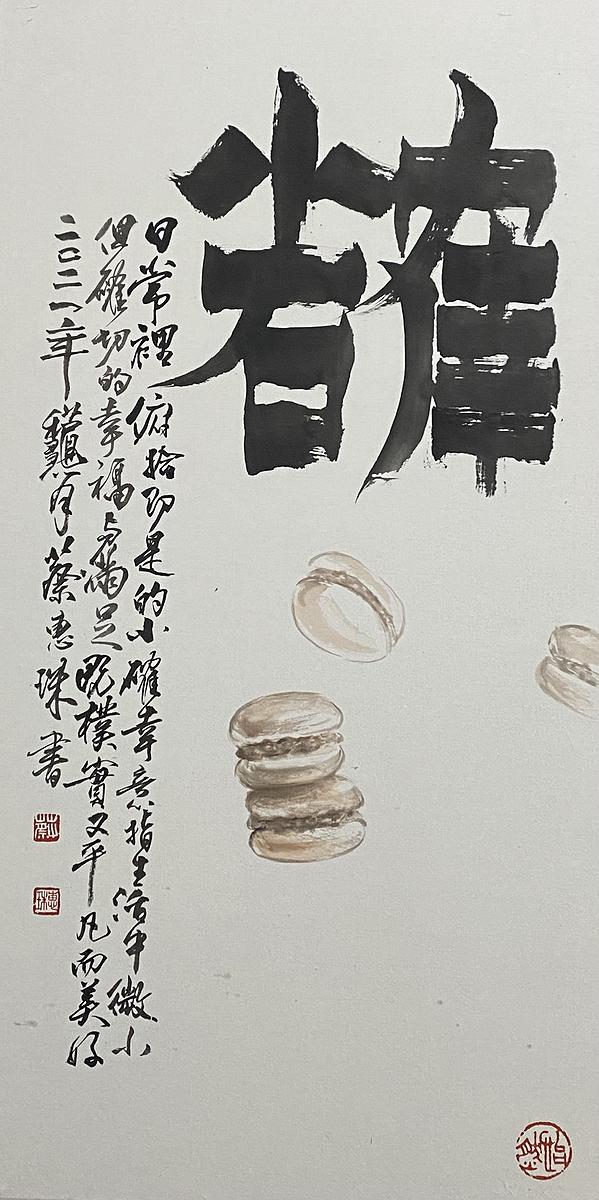 小確
日常裡俯拾即是的小確幸意指生活中微小
但確切的幸福與滿足既樸實又平凡而美好
二〇二一年龝月蔡惠珠書
惠珠
怡然